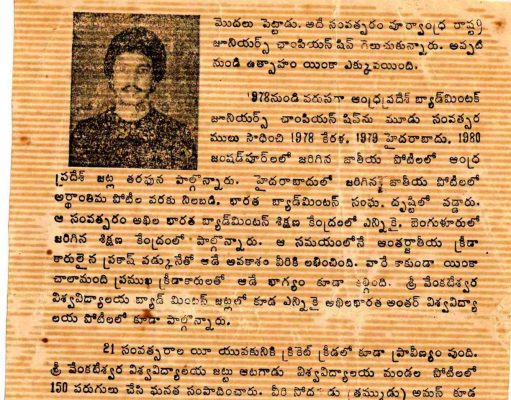 మొదలు పెట్టాడు. అదే సంవత్సరం పూర్వాంధ్ర రాష్ట్ర
జూనియర్స్ చాంపియన్ షిప్ గెలుచుకున్నారు. అప్పటి
నుండి ఉత్సాహం యింకా ఎక్కువయింది.
1978నుండి వరుసగా ఆంధ్రప్రదేశ్ బ్యాడ్‌మింటన్
జూనియర్స్ చాంపియన్ షిప్‌ను మూడు సంవత్సర
ములు సాధించి 1978 కేరళ, 1979 హైదరాబాదు, 1980
జంషడ్‌పూర్‌లలో జరిగిన జాతీయ పోటీలలో ఆంధ్ర
ప్రదేశ్ జట్ల తరఫున పాల్గొన్నారు. హైదరాబాదులో జరిగిన జాతీయ పోటీలలో
అర్థాంతిమ పోటీల వరకు నిలబడి, భారత బ్యాడ్‌మింటన్ సంఘ దృష్టిలో వడ్డారు.
ఆ సంవత్సరం అఖిల భారత బ్యాడ్‌మింటన్ శిక్షణ కేంద్రంలో ఎన్నికై, బెంగుళూరులో
జరిగిన శిక్షణ కేంద్రంలో పాల్గొన్నారు. ఆ సమయంలోనే ఆంతర్జాతీయ క్రీడా
కారులైన ప్రకాష్ వడ్కునేతో ఆడే అవకాశం వీరికి లభించింది. వారే కాకుండా యింకా
చాలామంది ప్రముఖ క్రీడాకారులతో ఆడే భాగ్యం కూడా కల్గింది. శ్రీ వేంకటేశ్వర
విశ్వవిద్యాలయ బ్యాడ్ మింటన్ జట్లలో కూడ ఎన్నికై అఖిలభారత అంతర్ విశ్వవిద్యా
లయ పోటీలలో కూడా పాల్గొన్నారు.
21 సంవత్సరాల యీ యువకునికి క్రికెట్ క్రీడలో కూడా ప్రావీణ్యం వుంది.
శ్రీ వేంకటేశ్వర విశ్వవిద్యాలయ జట్టు ఆటగాడు విశ్వవిద్యాలయ మండల పోటీలలో
150 వరుగులు చేసి ఘనత సంపాదించారు. వీరి సోదరుడు (తమ్ముడు) అమన్ కూడ